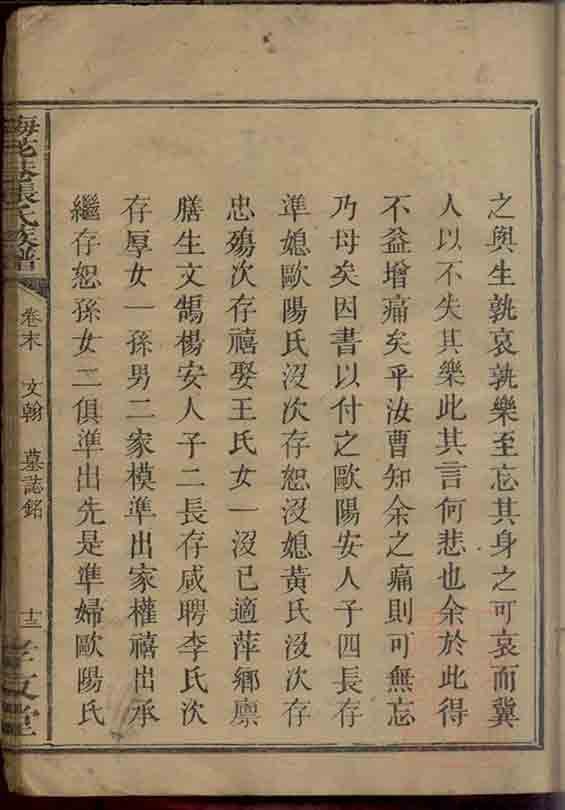 之與生孰哀孰樂至忘其身之可哀而冀
人以不失其樂此其言何悲也余於此得
不益增痛矣乎汝曹知余之痛則可無忘
乃母矣因書以付之歐陽安人子四長存
準媳歐陽氏沒次存恕沒媳黃氏沒次存
忠殤次存禧娶王氏女一沒已適萍鄉廪
膳生文鵠楊安人子二長存咸聘李氏次
存厚女一孫男二家模準出家權禧出承
繼存恕孫女二俱準出先是準婦歐陽氏
梅花巷張氏族譜
卷末
文翰
墓誌銘
十三
孝友堂